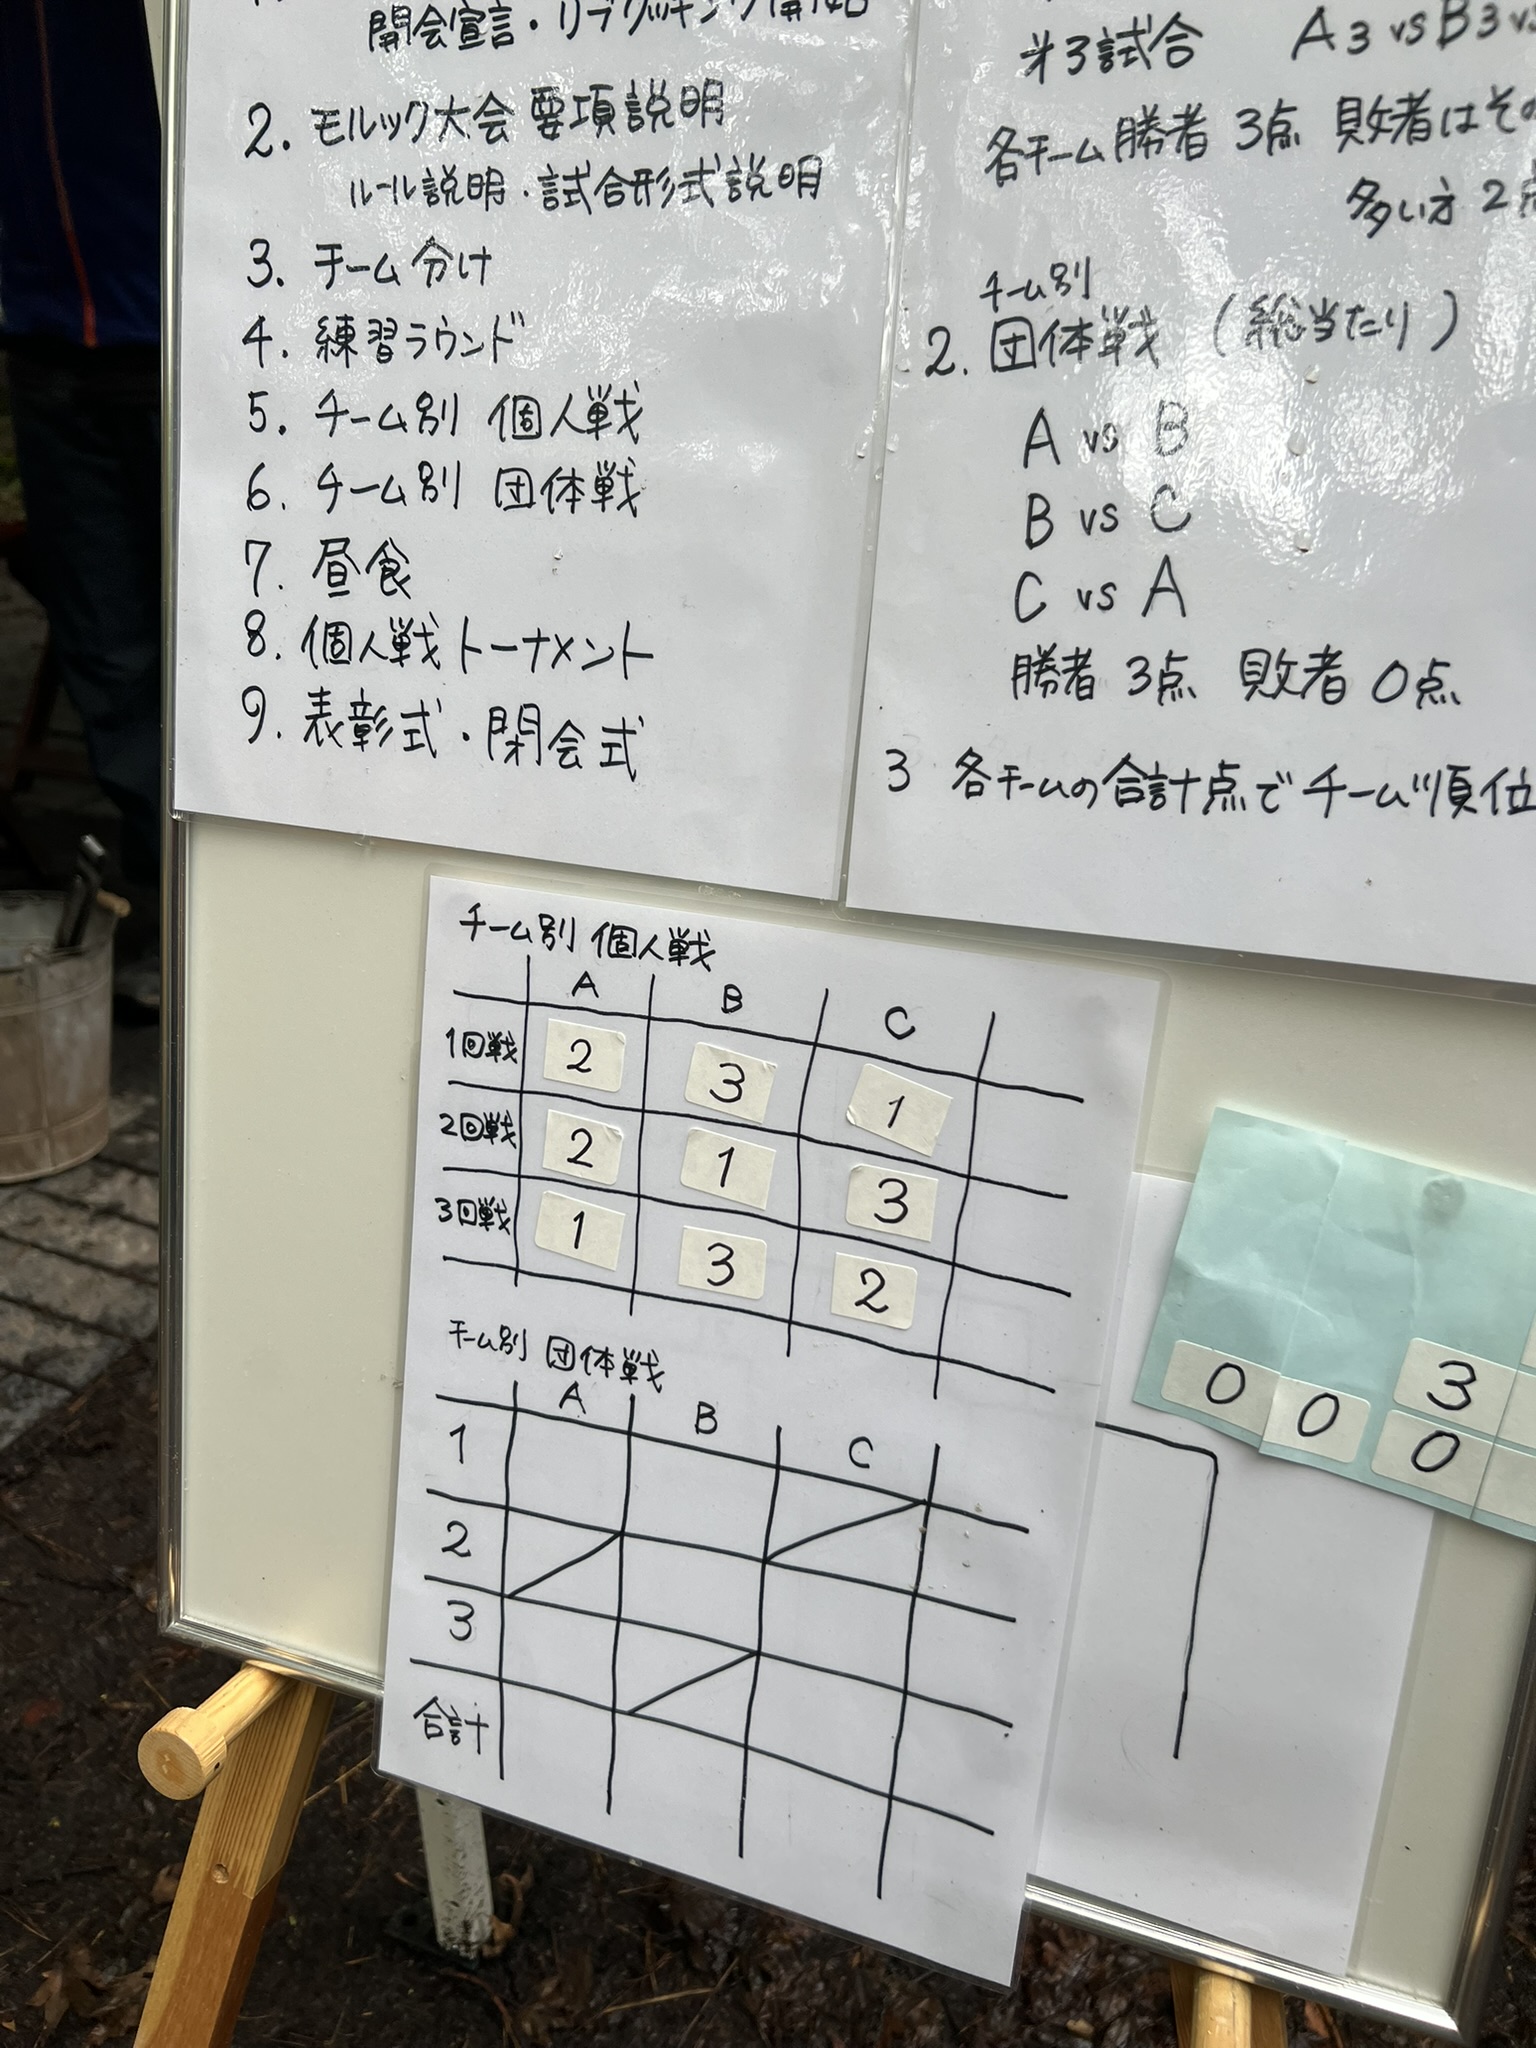 開会宣言・
2. モルック大会 要項説明
ルール説明・試合形式説明
3. チーム分け
4. 練習ラウンド
5. チーム別 個人戦
6. チーム別 団体戦
7. 昼食
8. 個人戦トーナメント
9. 表彰式・閉会式
才3試合 A3 vs B3 vs
各チーム勝者 3点 敗者はその
多い方 2点
チーム別
2. 団体戦 (総当たり)
A vs B
B vs C
C vs A
勝者 3点 敗者 0点
3 各チームの合計点でチーム順位
チーム別 個人戦
A B C
1回戦 2 3 1
2回戦 2 1 3
3回戦 1 3 2
チーム別 団体戦
A B C
1
2
3
合計
0 0 3
0